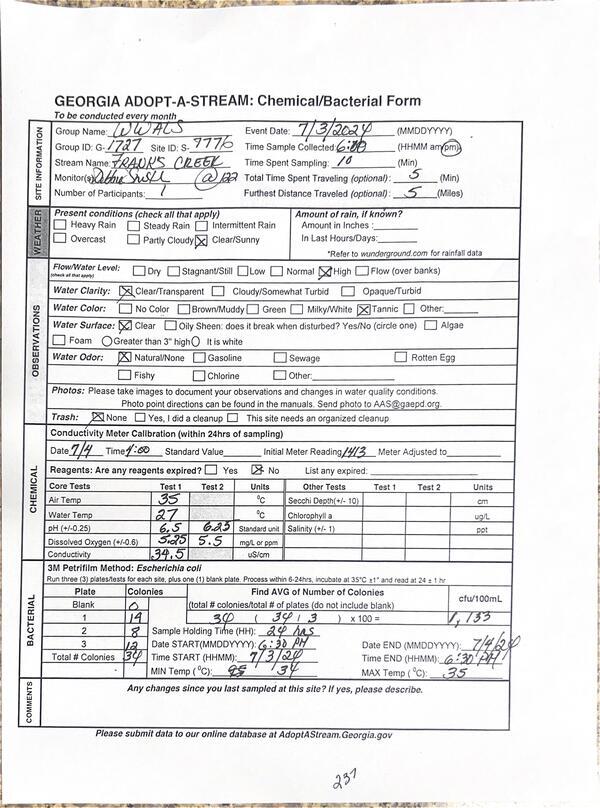 GEORGIA ADOPT-A-STREAM: Chemical/Bacterial Form
To be conducted every month
SITE INFORMATION
Group Name: WWALS Event Date: 7/3/2024 (MMDDYYYY)
Group ID: G-1727 Site ID: S-7776 Time Sample Collected: 6:00 (HHMM am/pm)
Stream Name: FRANKS CREEK Time Spent Sampling: 10 (Min)
Monitor(s) @ 122 Total Time Spent Traveling (optional): 5 (Min)
Number of Participants: 1 Furthest Distance Traveled (optional): 5 (Miles)
WEATHER
Present conditions (check all that apply) Amount of rain, if known?
Heavy Rain Steady Rain Intermittent Rain Amount in Inches :
Overcast Partly Cloudy Clear/Sunny In Last Hours/Days:
*Refer to wunderground.com for rainfall data
OBSERVATIONS
Flow/Water Level: Dry Stagnant/Still Low Normal High Flow (over banks)
(check all that apply)
Water Clarity: Clear/Transparent Cloudy/Somewhat Turbid Opaque/Turbid
Water Color: No Color Brown/Muddy Green Milky/White Tannic Other:
Water Surface: Clear Oily Sheen: does it break when disturbed? Yes/No (circle one) Algae
Foam Greater than 3" high It is white
Water Odor: Natural/None Gasoline Sewage Rotten Egg
Fishy Chlorine Other:
Photos: Please take images to document your observations and changes in water quality conditions.
Photo point directions can be found in the manuals. Send photo to AAS@gaepd.org.
Trash: None Yes, I did a cleanup This site needs an organized cleanup
CHEMICAL
Conductivity Meter Calibration (within 24hrs of sampling)
Date 7/4 Time 4:00 Standard Value Initial Meter Reading 1413 Meter Adjusted to
Reagents: Are any reagents expired? Yes No List any expired:
Core Tests Test 1 Test 2 Units Other Tests Test 1 Test 2 Units
Air Temp 35 °C Secchi Depth(+/- 10) cm
Water Temp 27 °C Chlorophyll a ug/L
pH (+/-0.25) 6.5 6.25 Standard unit Salinity (+/- 1) ppt
Dissolved Oxygen (+/-0.6) 5.25 5.5 mg/L or ppm
Conductivity 34.5 uS/cm
BACTERIAL
3M Petrifilm Method: Escherichia coli
Run three (3) plates/tests for each site, plus one (1) blank plate. Process within 6-24hrs, incubate at 35°C ±1° and read at 24 ± 1 hr
Plate Colonies Find AVG of Number of Colonies cfu/100mL
Blank 0 (total # colonies/total # of plates (do not include blank)
1 14 34 ( 34 / 3 ) x 100 = 1,133
2 8 Sample Holding Time (HH): 24 hrs
3 12 Date START(MMDDYYYY): 6:30 PM Date END (MMDDYYYY): 7/4/24
Total # Colonies 34 Time START (HHMM): 7/3/24 Time END (HHMM): 6:30 PM
MIN Temp (°C): 34 MAX Temp (°C): 35
COMMENTS
Any changes since you last sampled at this site? If yes, please describe.
Please submit data to our online database at AdoptAStream.Georgia.gov
237